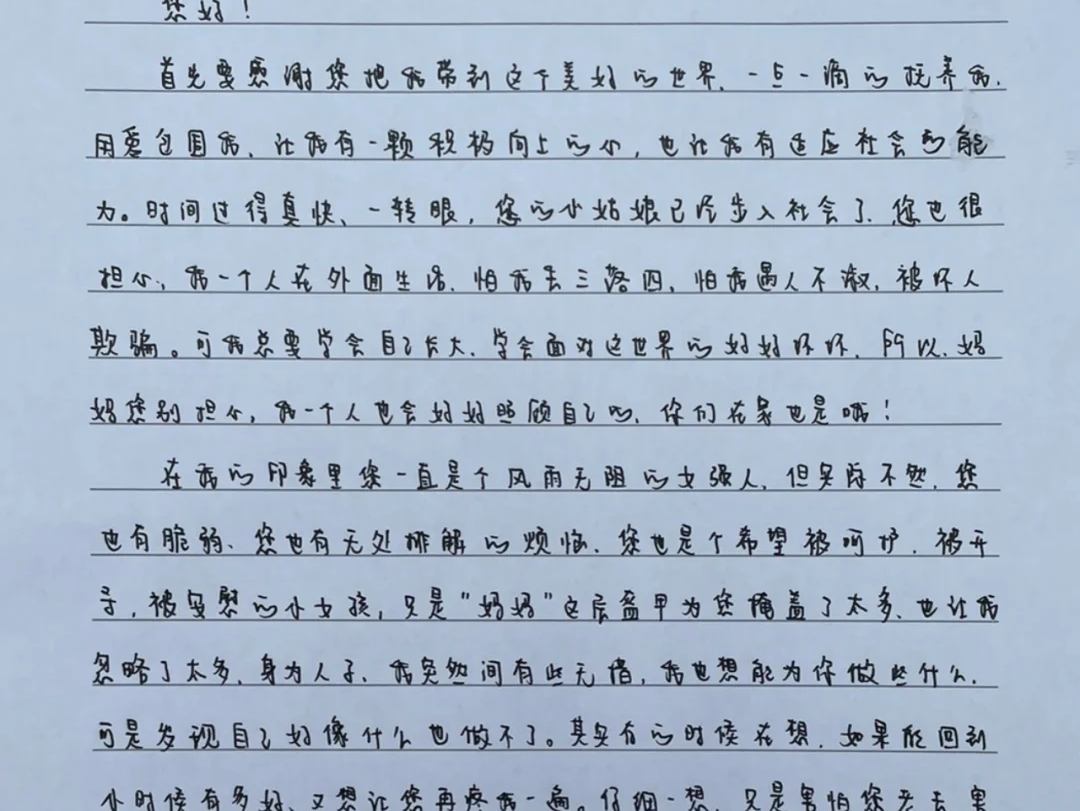 您好！
首先要感谢您把我带到这个美好的世界、一点一滴的抚养我.
用爱包围我、让我有一颗积极向上的心，也让我有适应社会的能
力。时间过得真快、一转眼，您的小姑娘已经步入社会了、您也很
担心，我一个人在外面生活、怕我丢三落四，怕我遇人不淑，被坏人
欺骗。可我总要学会自己长大、学会面对这世界的好好坏坏、所以、妈
妈您别担心，我一个人也会好好照顾自己的、你们在家也是哦！
在我的印象里您一直是个风雨无阻的女强人、但实际不然、您
也有脆弱、您也有无处排解的烦恼、您也是个希望被呵护、被开
导，被安慰的小女孩，只是"妈妈"这层盔甲为您掩盖了太多、也让我
忽略了太多、身为人子、我突然间有些无措，我也想能为你做些什么、
可是发现自己好像什么也做不了。其实有的时候在想、如果能回到
小时候有多好、又想让您再疼我一遍。仔细一想、只是害怕您老去 罢